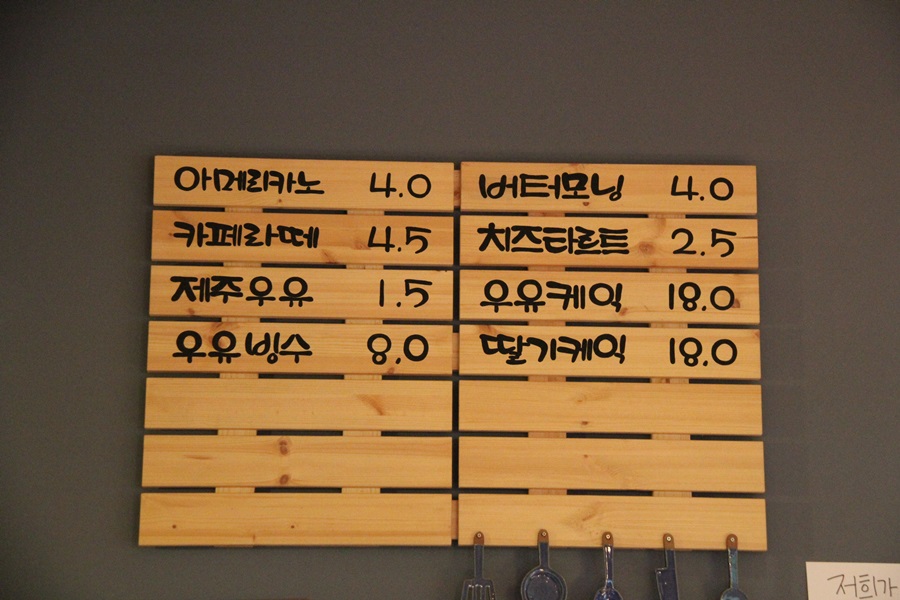 아메리카노 4.0
카페라떼 4.5
제주우유 1.5
우유빙수 8.0
버터모닝 4.0
치즈타르트 2.5
우유케익 18.0
딸기케익 18.0
저희가